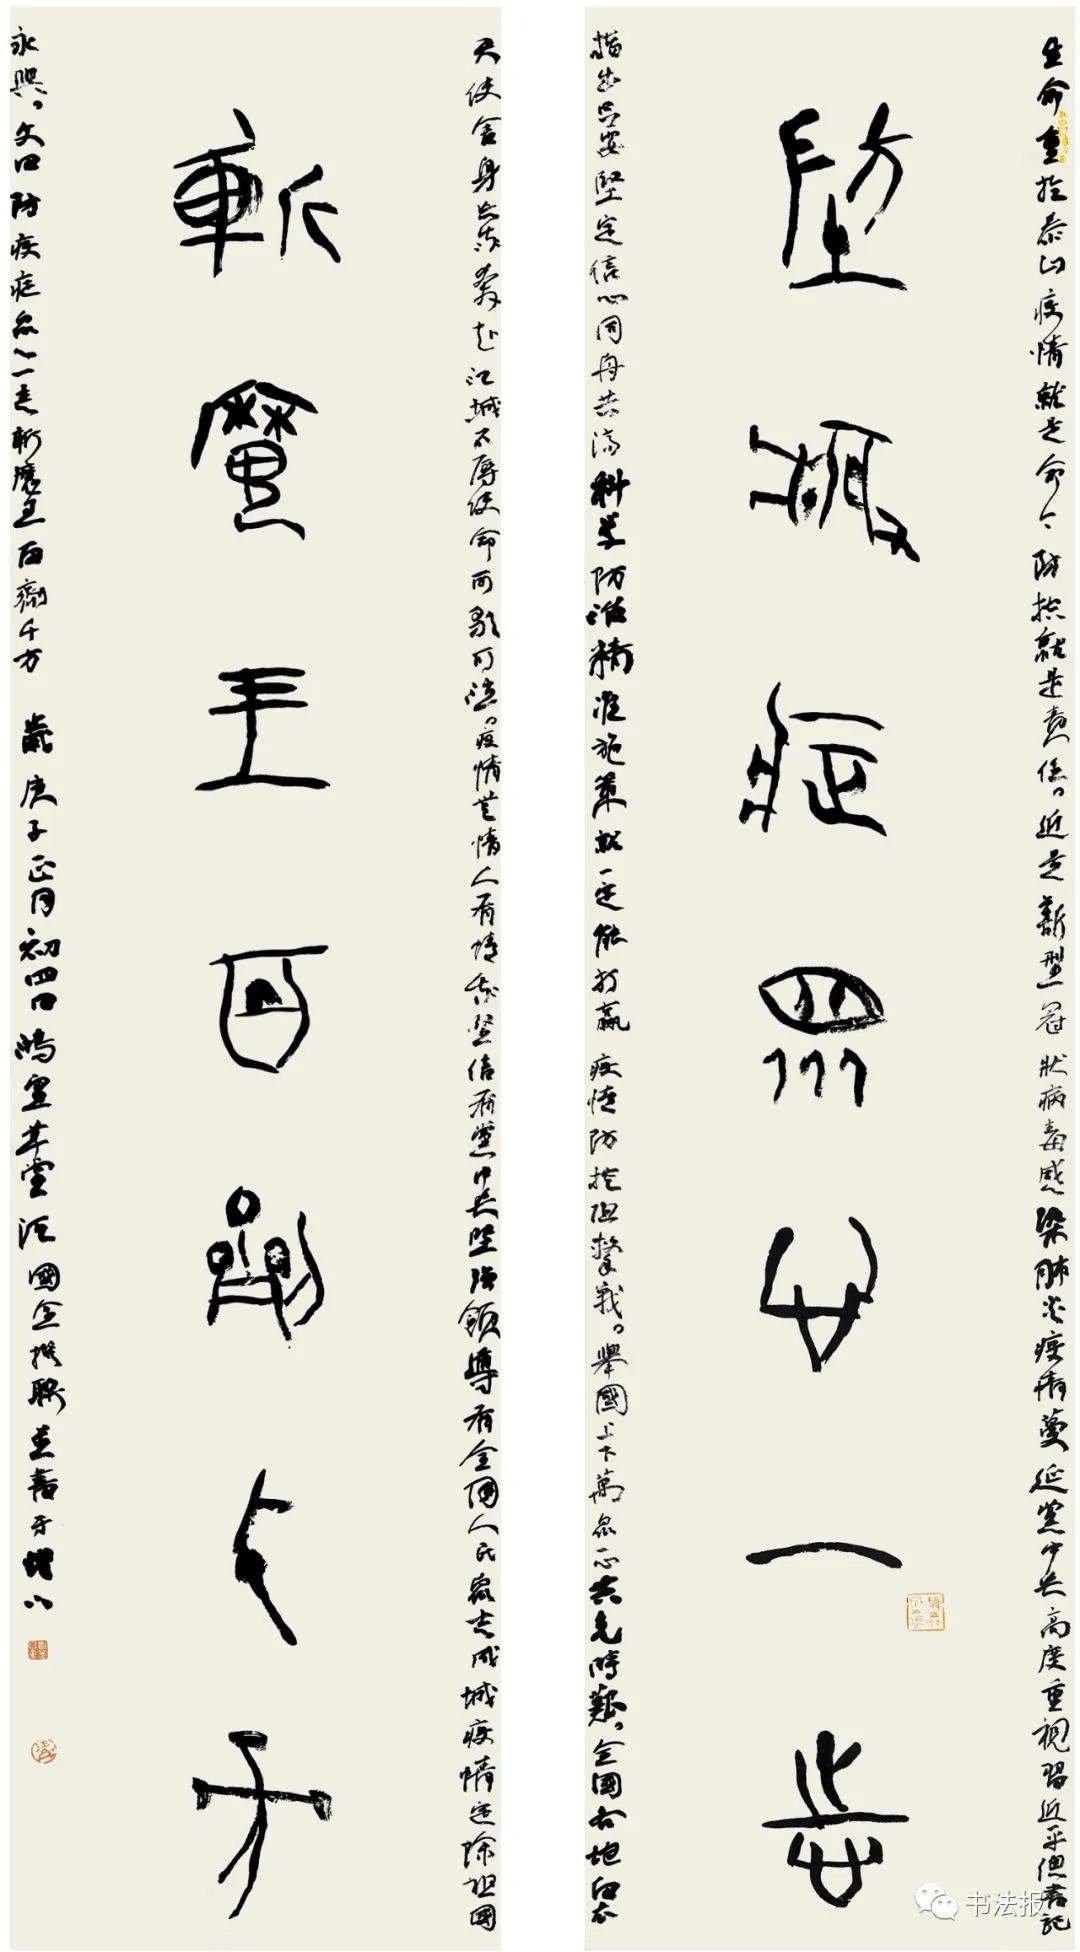 生命重於泰山疫情就是命令防控就是責任。近是新型冠狀病毒感染肺炎疫情蔓延黨中央高度重視習近平總書記
防疫症眾心一志
指出只要堅定信心同舟共濟科學防治精準施策就一定能打贏疫情防控阻擊戰。舉國上下萬眾一心共克時艱。全國各地白衣
天使舍身忘我奔赴江城不辱使命可歌可泣。疫情無情人有情我堅信有黨中央堅強領導有全國人民眾志成城疫情定除祖國
斬魔王百劑千方
永興。文曰防疫症眾心一志斬魔王百劑千方 歲庚子正月初四日草堂國金撰聯並書于
书法报